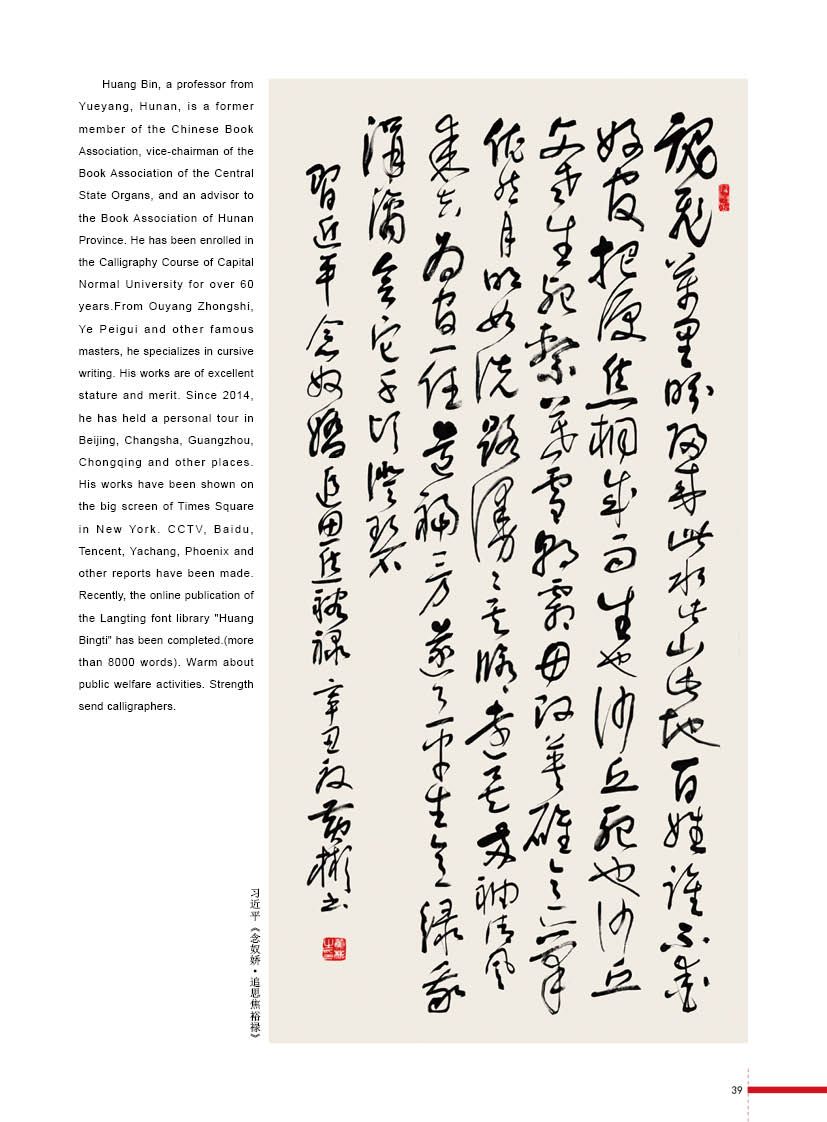 Huang Bin, a professor from
Yueyang, Hunan, is a former
member of the Chinese Book
Association, vice-chairman of the
Book Association of the Central
State Organs, and an advisor to
the Book Association of Hunan
Province. He has been enrolled in
the Calligraphy Course of Capital
Normal University for over 60
years.From Ouyang Zhongshi,
Ye Peigui and other famous
masters, he specializes in cursive
writing. His works are of excellent
stature and merit. Since 2014,
he has held a personal tour in
Beijing, Changsha, Guangzhou,
Chongqing and other places.
His works have been shown on
the big screen of Times Square
in New York. CCTV, Baidu,
Tencent, Yachang, Phoenix and
other reports have been made.
Recently, the online publication of
the Langting font library "Huang
Bingti" has been completed.(more
than 8000 words). Warm about
public welfare activities. Strength
send calligraphers.
魂飛萬里盼歸來此水此山此地百姓誰不愛
好官把淚焦桐成雨生也沙丘死也沙丘
父老生死繫暮雪朝霜毋改英雄意氣
依然月明如洗路漫漫其脩遠矣两袖清風
來去為官一任造福一方遂了平生意綠我
涓滴會它千頃澄碧
習近平念奴嬌追思焦裕禄辛丑秋黄彬书
习近平《念奴娇·追思焦裕禄》
39